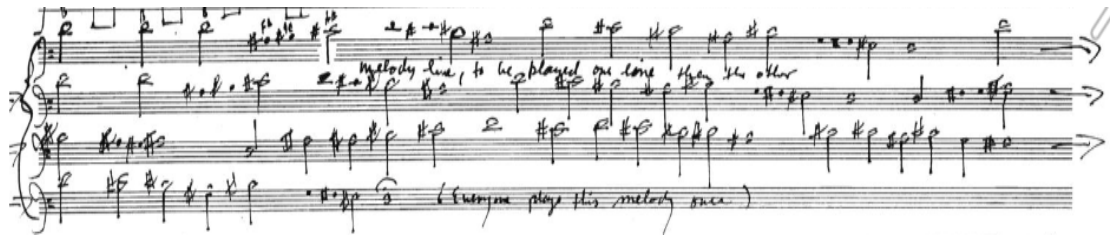 melody line, to be played one line then the other
(Everyone plays this melody once)